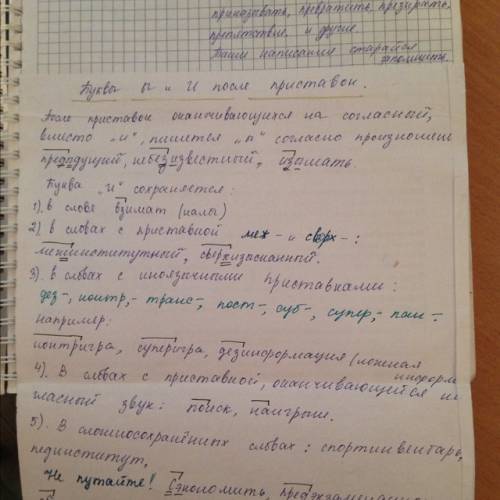 приказывать, превратить, презирать,
препятствие и другие.
Ваши написания старайся
запомнить.
Буквы Ы и И после приставок.
После приставок оканчивающихся на согласный,
вместо „и", пишется „ы" согласно произношен
предыдущий, небезызвестный, изымать.
Буква „И" сохраняется:
1). в слове взимат (налы)
2) в словах с приставкой меж- и сверх-:
межинститутный, сверхизысканный.
3). в словах с иноязычными приставками:
дез-, контр,- транс-, пост-, суб-, супер,- пан-.
например:
контригра, суперигра, дезинформация (ложная
информ
4). В словах с приставкой, оканчивающейся на
гласный звук: поиск, наигрыш.
5). В сложносокращённых словах: спортинвентарь,
пединститут,
Не путайте! Сэкономить, предэкзаменацио